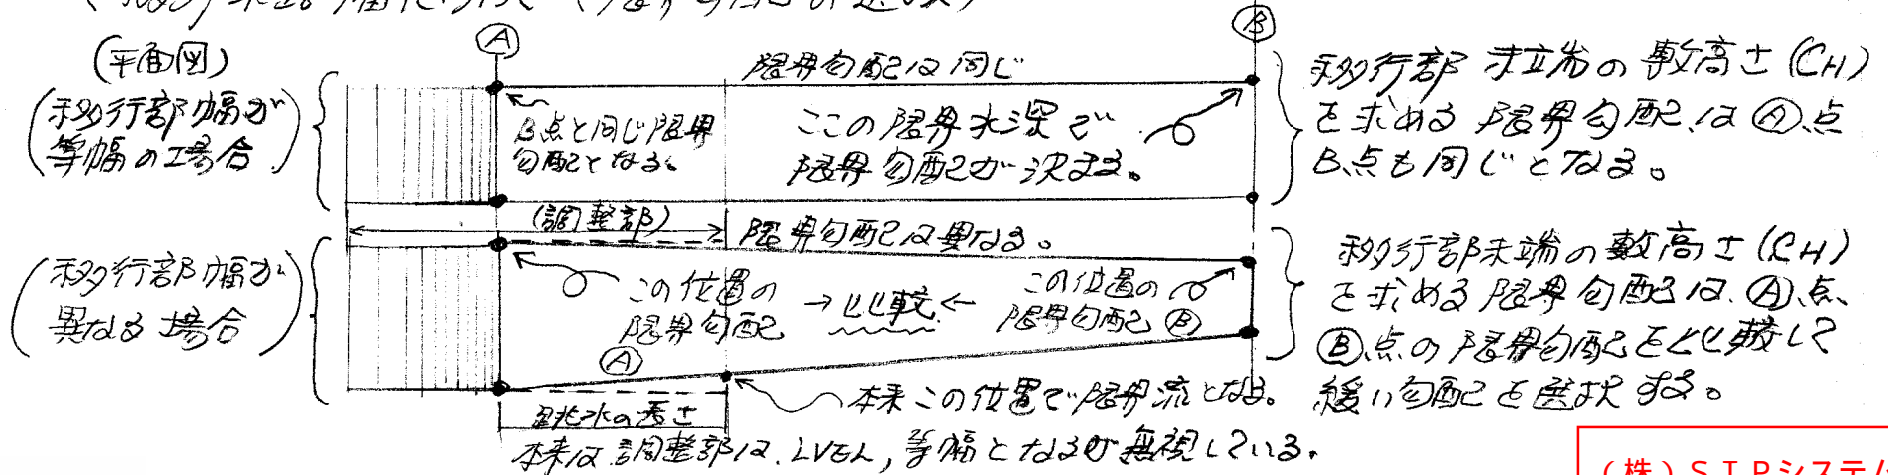 (限界勾配の選択)
Ⓐ
Ⓑ
(平面図)
(移行部幅が
等幅の場合)
限界勾配は同じ
B点と同じ限界
勾配となる。
ここの限界水深で
限界勾配が決まる。
移行部末端の敷高さ(CH)
を求める限界勾配は Ⓐ点
B点も同じとなる。
(調整部)
限界勾配は異なる。
(移行部幅が
異なる場合)
この位置の
限界勾配
Ⓐ
→比較←
この位置の
限界勾配 Ⓑ
移行部末端の敷高さ(CH)
を求める限界勾配は、Ⓐ点、
Ⓑ点の限界勾配を比較して
緩い勾配を選択する。
跳水の長さ
本来この位置で限界流となる。
本来は調整部は、LVEL,等幅となるが無視している。
(株)SIPシステム